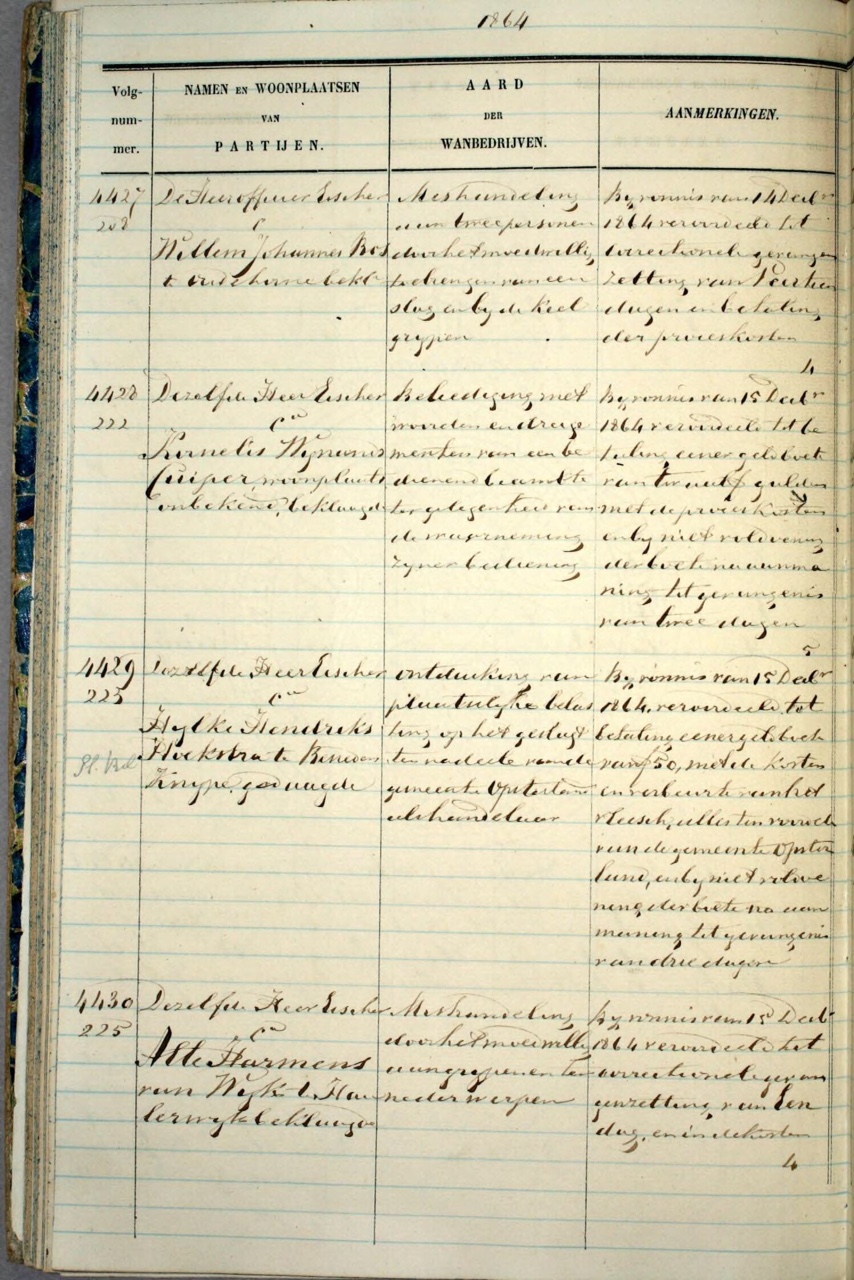 1864
Volg-
num-
mer.
NAMEN EN WOONPLAATSEN
VAN
PARTIJEN.
AARD
DER
WANBEDRIJVEN.
AANMERKINGEN.
4427
208
De Heer officier Eischer
C
Willem Johannes Bos
te beklt
Mishandeling
aan twee personen
door het moedwillig
toebrengen van een
slag en by de keel
grypen
By vonnis van 14 Decbr
1864 veroordeeld tot
correctionele gevangen
zetting van Veertien
dagen en betaling
der proceskosten
4
4428
222
Dezelfde Heer Eischer
Ca
Kornelis Wynands
Cuiper, woonplaats
onbekend, beklaagde
Beleediging met
woorden en dreige
menten van een be
dienend beambte
ter gelegenheid van
de waarneming
zyner bediening
By vonnis van 15 Decbr
1864 veroordeeld tot be
taling eener geldboete
van gulden
met de proceskosten
en by niet voldoening
der boete na aanma
ning tot gevangenis
van twee dagen
5
4429
225
Dezelfde Heer Eischer
Ca
Hylke Hendriks
Hoekstra te Beneden
Knype, gedaagde
ontduiking van
plaatselyke belas
ting op het geslagt
ten nadeele van de
gemeente Opsterland
als handelaar
By vonnis van 15 Decbr
1864, veroordeeld, tot
betaling eener geldboete
van f 50, met de kosten
en verbeurte van het
vleesch, alles ten voordeele
van de gemeente Opster
land, en by niet voldoe
ning der boete na aan
maning tot gevangenis
van drie dagen
4430
225
Dezelfde Heer Eischer
Ca
Atte Harmens
van Wyk te Hau
lerwyk beklaagde
Mishandeling
door het moedwillig
aangrypen en ter
nederwerpen
By vonnis van 15 Decbr
1864 veroordeeld tot
correctionele gevan
genzetting van Een
dag, en in de kosten
4